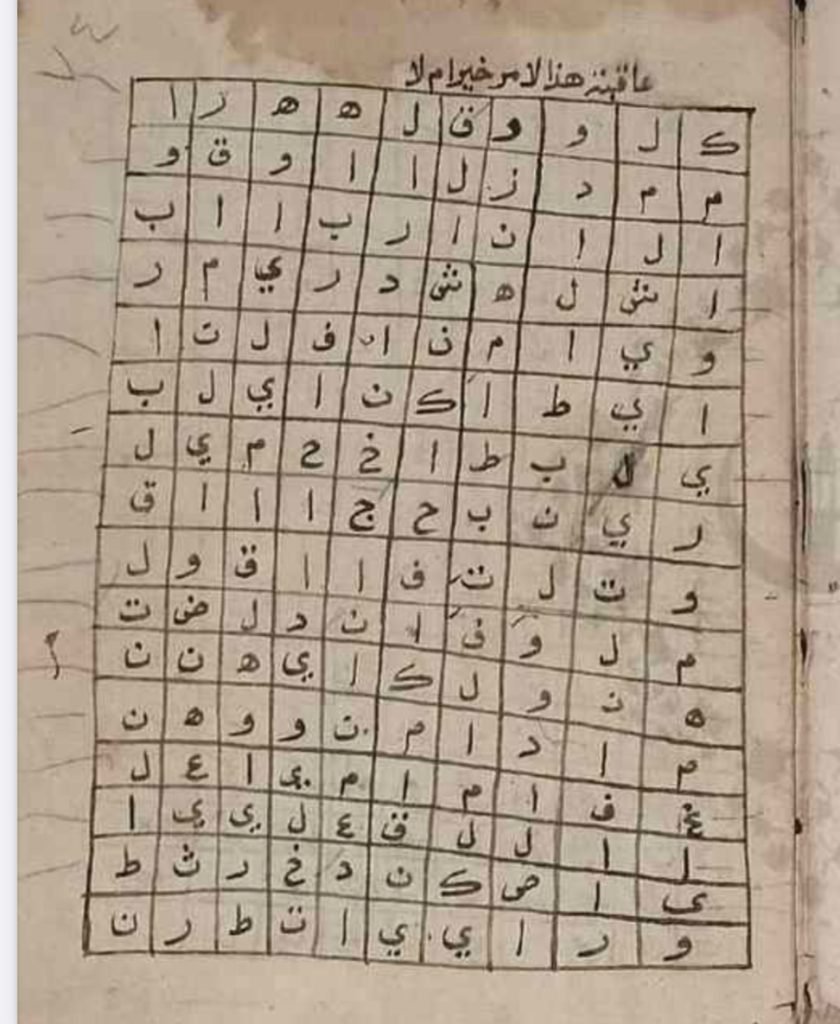 عاقبة هذا الامر خير ام لا
ك ل و و ق ل ه ه ر ا
م م د ز ل ا ا و ق و
ا ل ا ن ا ر ب ا ا ب
ا ش ل ه ش د ر ي م ر
و ي ا م ن ا ف ل ت ا
ا ي ط ا ك ن ا ي ل ب
ي ل ب ط ا خ ح م ي ل
ر ي ن ب ح ج ا ا ا ق
و ت ل ت ف ا ا ق و ل
م ل و ف ا ن د ل ض ت
ه ن و ل ك ا ي ه ن ن
م ا د ا م ن و و ه ن
غ ف ا م ا م ي ا ع ل
ل ا ل ل ق ع ل ي ي ا
ى ا ص ك ن د خ ر ث ط
و ر ا ي ي ا ت ط ر ن